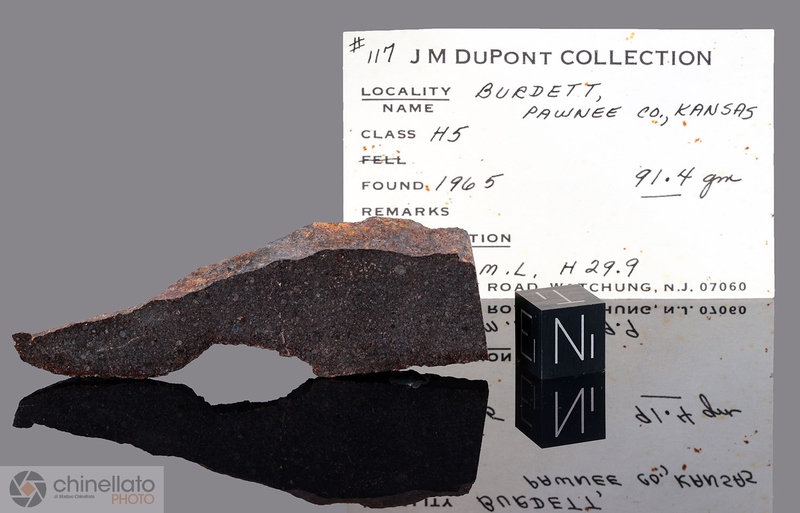 #117 J M DUPONT COLLECTION
LOCALITY NAME BURDETT,
PAWNEE CO., KANSAS
CLASS H5
FELL
FOUND 1965 91.4 gm
REMARKS
M.L. H29.9
ROAD, WATCHUNG, N.J. 07060
N
chinellato
PHOTO